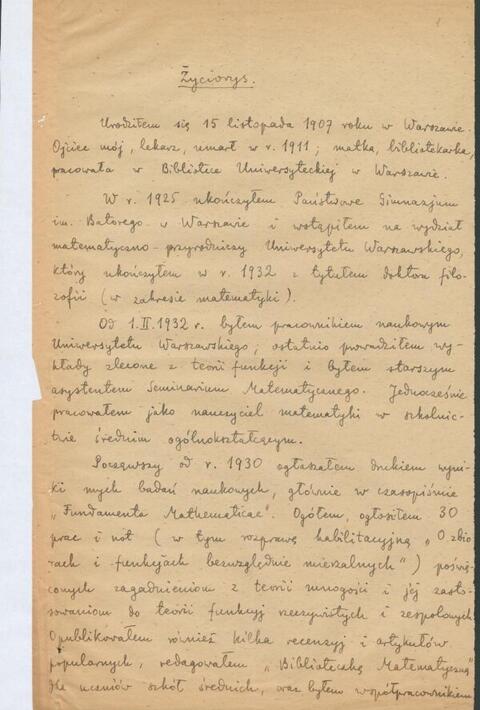 Życiorys.
Urodziłem się 15 listopada 1907 roku w Warszawie.
Ojciec mój, lekarz, umarł w r. 1911; matka, bibliotekarka,
pracowała w Bibliotece Uniwersyteckiej w Warszawie.
W r. 1925 ukończyłem Państwowe Gimnazjum
im. Batorego w Warszawie i wstąpiłem na wydział
matematyczno-przyrodniczy Uniwersytetu Warszawskiego,
który ukończyłem w r. 1932 z tytułem doktora filo-
zofii (w zakresie matematyki).
Od 1.II.1932 r. byłem pracownikiem naukowym
Uniwersytetu Warszawskiego; ostatnio prowadziłem wy-
kłady zlecone z teorii funkcji i byłem starszym
asystentem Seminarium Matematycznego. Jednocześnie
pracowałem jako nauczyciel matematyki w szkolnic-
twie średnim ogólnokształcącym.
Począwszy od r. 1930 ogłaszałem drukiem wyni-
ki mych badań naukowych, głównie w czasopiśmie
„Fundamenta Mathematicae". Ogółem, ogłosiłem 30
prac i not (w tym rozprawę habilitacyjną „O zbio-
rach i funkcjach bezwzględnie mierzalnych") poświę-
conych zagadnieniom z teorii mnogości i jej zasto-
sowaniom do teorii funkcyj rzeczywistych i zespolonych.
Opublikowałem również kilka recenzyj i artykułów
popularnych, redagowałem „Biblioteczkę Matematyczną"
dla uczniów szkół średnich, oraz byłem współpracownikiem